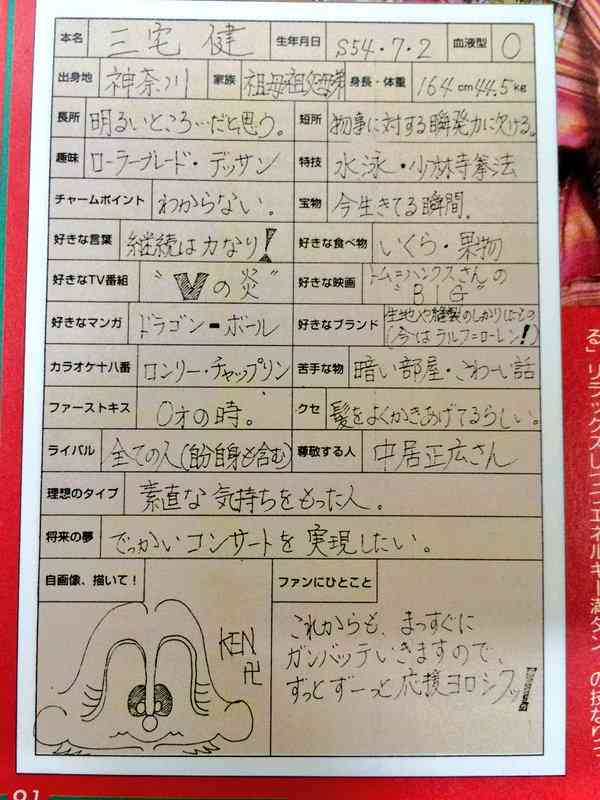 本名 三宅 健 生年月日 S54・7・2 血液型 O
出身地 神奈川 家族 祖母祖父母弟 身長・体重 164cm 44.5kg
長所 明るいところ…だと思う。 短所 物事に対する瞬発力に欠ける。
趣味 ローラーブレード・デッサン 特技 水泳・少林寺拳法
チャームポイント わからない。 宝物 今生きてる瞬間。
好きな言葉 継続は力なり! 好きな食べ物 いくら・果物
好きなTV番組 "Vの炎" 好きな映画 トム=ハンクスさんの
"BIG"
好きなマンガ ドラゴン=ボール 好きなブランド 生地や縫製のしっかりしたもの
(今はラルフ=ローレン!)
カラオケ十八番 ロンリー・チャップリン 苦手な物 暗い部屋・こわーい話
ファーストキス 0才の時。 クセ 髪をよくかきあげてるらしい。
ライバル 全ての人(自分自身も含む) 尊敬する人 中居正広さん
理想のタイプ 素直な気持ちをもった人。
将来の夢 でっかいコンサートを実現したい。
自画像、描いて!
KEN
卍
ファンにひとこと
これからも、まっすぐに
ガンバッテいきますので、
ずっとずーっと応援ヨロシクッ!
る」リラックスしつつエネルギー満タン
91